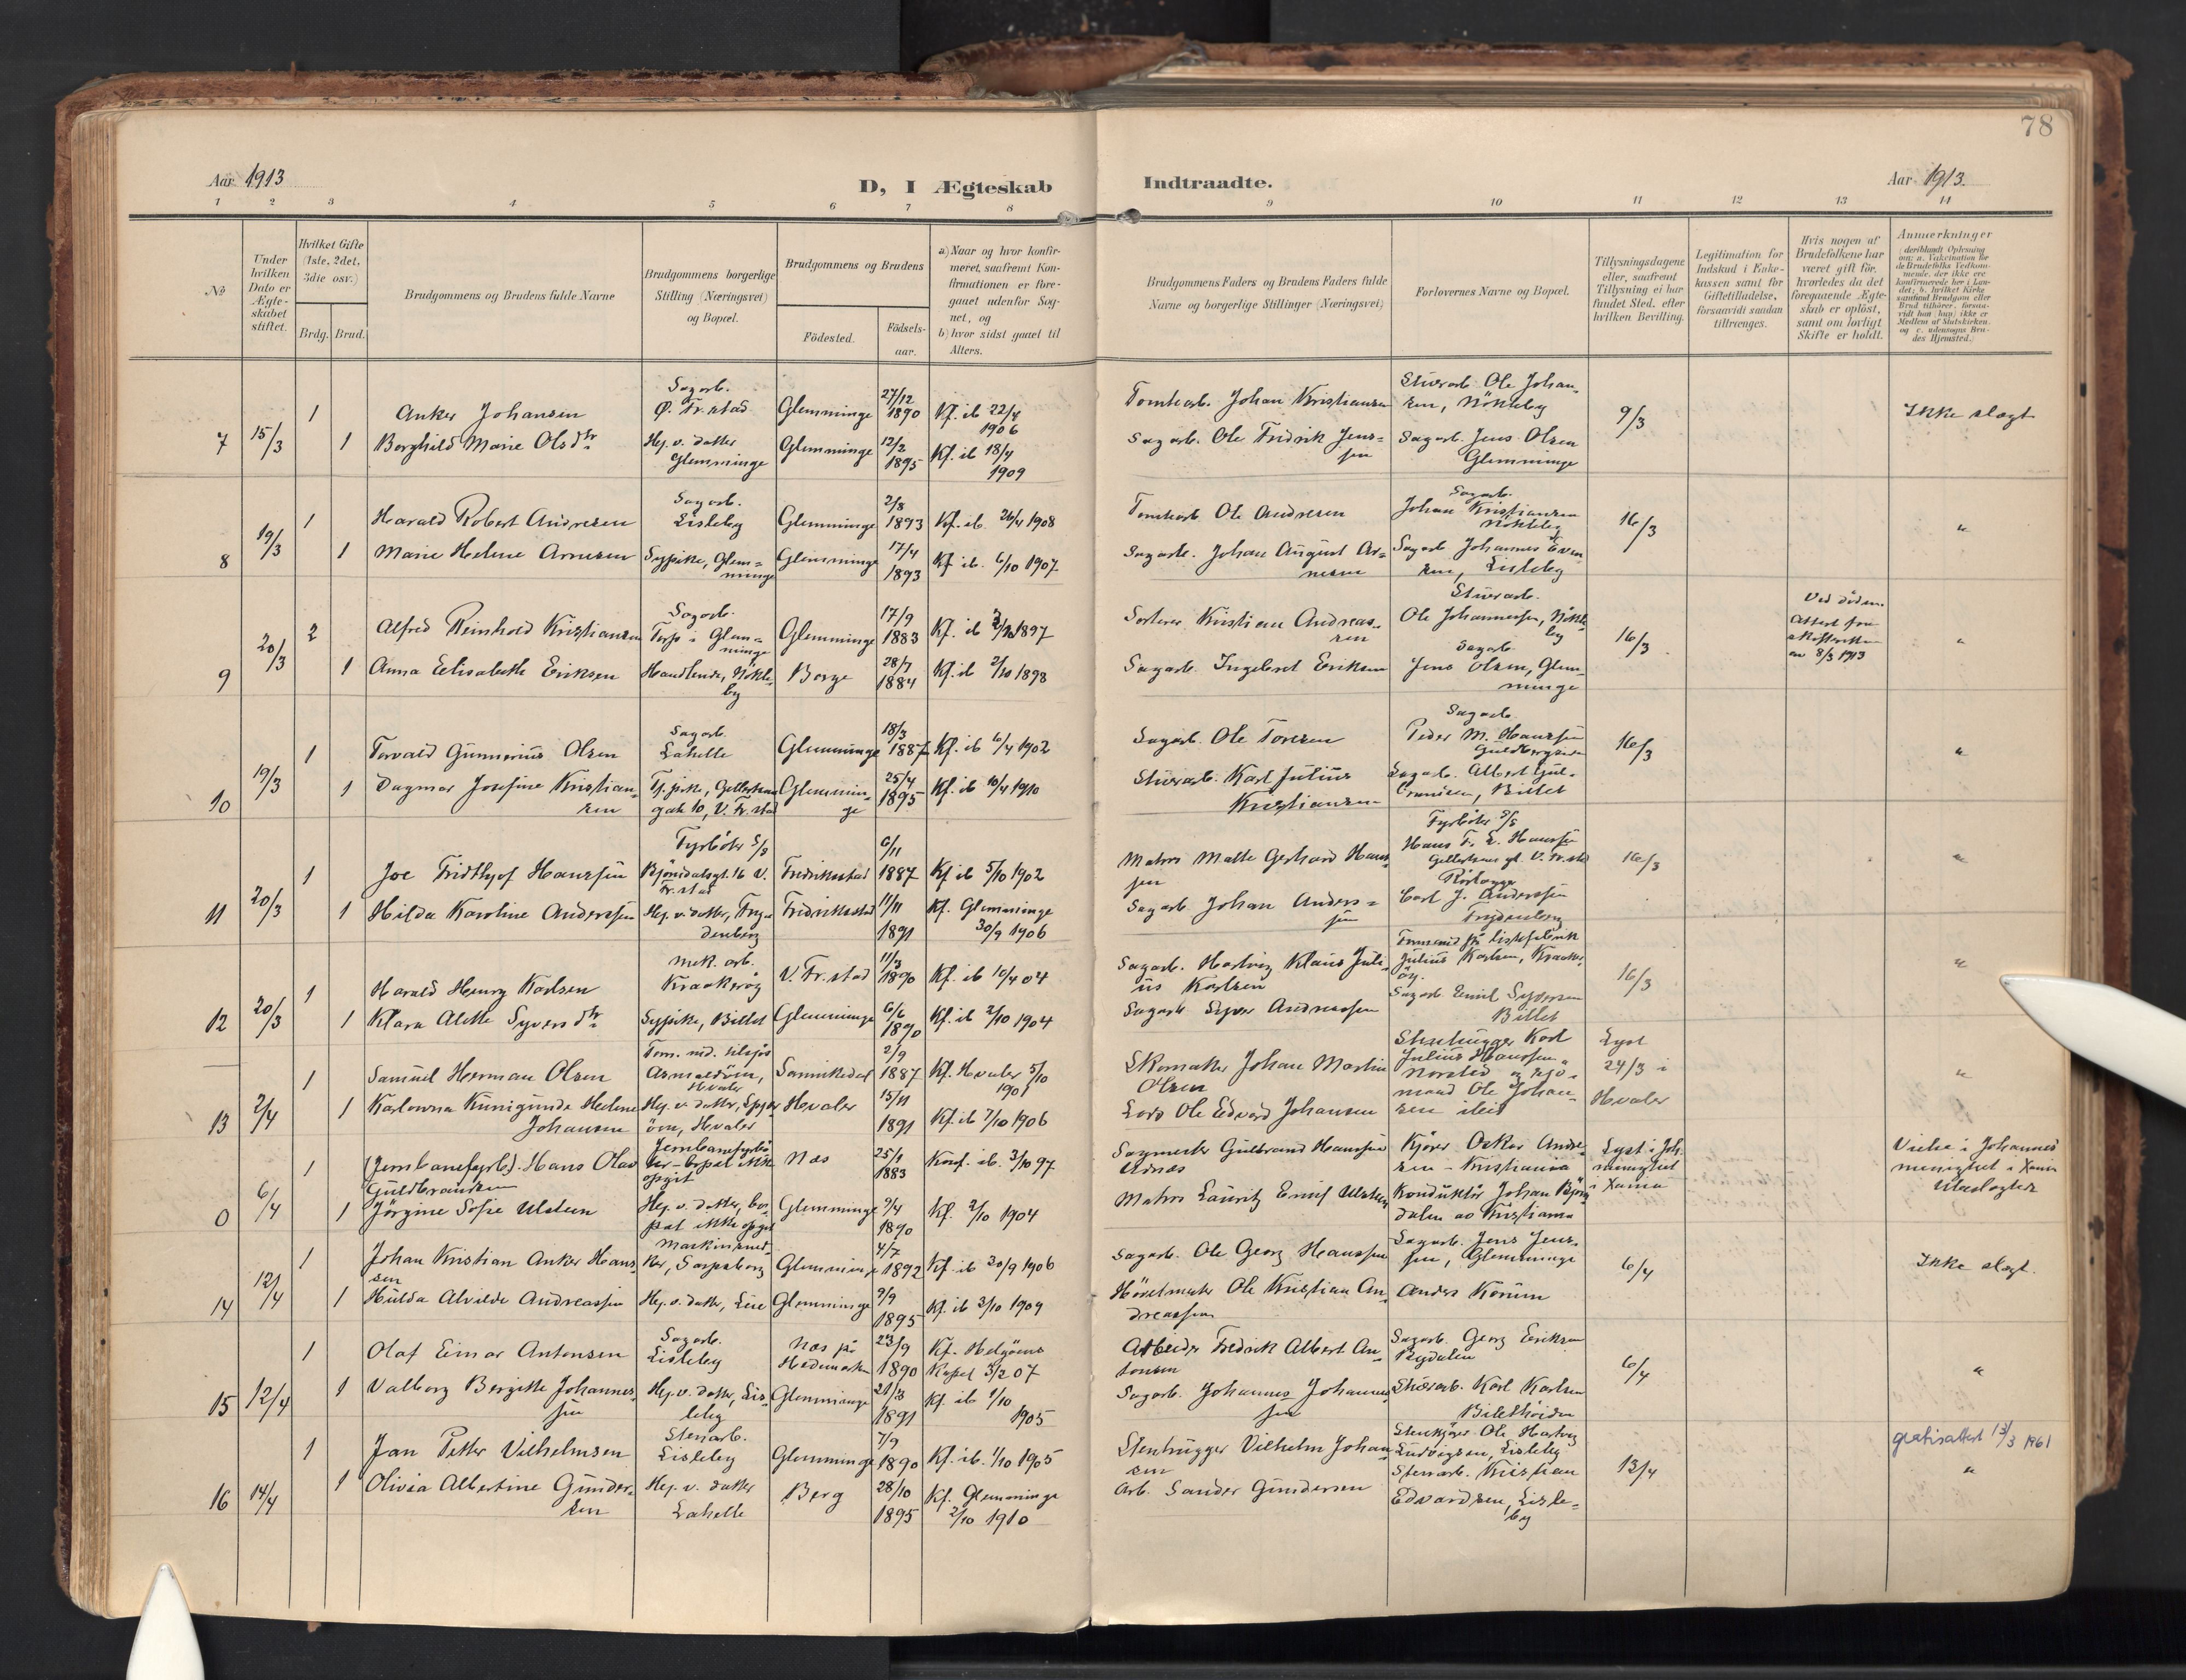 78
Aar 1913
D, I Ægteskab
Indtraadte.
Aar 1913.
1 2 3 4 5 6 7 8
9 10 11 12 13 14
No
Under hvilken Dato er Ægte-skabet stiftet.
Hvilket Gifte (1ste, 2det, 3die osv.)
Brdg. Brud.
Brudgommens og Brudens fulde Navne
Brudgommens borgerlige Stilling (Næringsvei) og Bopæl.
Brudgommens og Brudens
Födested.
Födsels-aar.
a) Naar og hvor konfir-meret, saafremt Kon-firmationen er fore-gaaet udenfor Sog-net, og
b) hvor sidst gaaet til Alters.
Brudgommens Faders og Brudens Faders fulde Navne og borgerlige Stillinger (Næringsvei)
Forlovernes Navne og Bopæl.
Tillysningsdagene eller, saafremt Tillysning ei har fundet Sted, efter hvilken Bevilling.
Legitimation for Indskud i Enke-kassen samt for Giftetilladelse, forsaavidt saadan tiltrænges.
Hvis nogen af Brudefolkene har været gift för, hvorledes da det foregaaende Ægte-skab er oplöst, samt om lovligt Skifte er holdt.
Anmærkninger
7 15/3
1 Anker Johansen Sagarb. Ø. Fr.stad Glemminge 27/12 1890 Kf. ib 22/4 1906
Tomtearb. Johan Kristiansen
Ole Johan-sen, Nökleby
9/3
Ikke slegt
1 Borghild Marie Olsdtr Hj. v. datter Glemminge Glemminge 12/2 1895 Kf. ib 18/4 1909
Sagarb. Ole Fredrik Jens-sen
Sagarb. Jens Olsen Glemminge
8 19/3
1 Harald Robert Andresen Sagarb. Lisleby Glemminge 2/8 1893 Kf. ib. 26/4 1908
Tomtearb. Ole Andresen
Sagarb. Johan Kristiansen Nökleby
16/3
"
1 Marie Helene Arnesen Sypike, Glem-minge Glemminge 17/4 1893 Kf ib. 6/10 1907
Sagarb. Johan August Ar-nesen
Sagarb Johannes Even-sen, Lisleby
9 20/3
2 Alfred Reinhold Kristiansen Sagarb. Torp i Glem-minge Glemminge 17/9 1883 Kf. ib 1897
Sorterer Kristian Andreas-sen
Ole Johannessen, Nökle-by
16/3
Ved döden. Attest fra 8/3 1913
"
1 Anna Elisabeth Eriksen Handlende, Nökle-by Borge 28/7 1884 Kf. ib 2/10 1898
Sagarb. Ingebret Eriksen
Sagarb. Jens Olsen, Glem-minge
10 19/3
1 Torvald Gunnerius Olsen Sagarb. Lahelle Glemminge 18/3 1887 Kf. ib 6/4 1902
Sagarb. Ole Toresen
Sagarb. Peder M. Hanssen
16/3
"
1 Dagmar Josefine Kristian-sen Glemmin-ge 25/4 1895 Kf. ib 10/4 1910
Karl Julius Kristiansen
Sagarb. Albert
11 20/3
1 Joe Fridthjof Hanssen Fyrböter Björnedalsgt. 16 V. Fr.stad Fredrikstad 6/11 1887 Kf ib 5/10 1902
Matros Malte Gerhard Hans-sen
Fyrböter Hans F. E. Hanssen V. Fr.stad
16/3
"
1 Hilda Karoline Anderssen Hj. v. datter, Fry-denberg Fredrikstad 11/11 1891 Kf. Glemminge 30/9 1906
Sagarb Johan Anders-sen
Carl J. Anderssen Frydenberg
12 20/3
1 Harald Henry Karlsen Mek. arb. Kraakeröy V. Fr.stad 11/3 1890 Kf. ib 10/4 04
Sagarb. Hartvig Klaus Juli-us Karlsen
Formand på listefabrik Julius Karlsen, Kraaker-öy.
16/3
"
1 Klara Alette Syversdtr Sypike, Billet Glemminge 6/6 1890 Kf. ib 2/10 1904
Sagarb Syver Andreassen
Sagarb Emil Syversen Billet
13 2/4
1 Samuel Herman Olsen Hvaler Sannikedal 2/9 1887 Kf. Hvaler 5/10 1901
Skomaker Johan Martin Olsen
Stenhugger Karl Julius Hanssen
Lyst 24/3 i Hvaler
"
1 Karlowna Kunigunde Helene Johansen Hj. v. datter, Spjær-öen, Hvaler Hvaler 15/11 1891 Kf. ib 7/10 1906
Lods Ole Edvard Johansen
Ole Johan-sen ibid
0 6/4
1 (Jernbanefyrb.) Hans Olav Guldbrandsen Jernbanefyrbö-ter - bopæl ikke opgit Næs 25/1 1883 Konf. ib. 3/10 97
Sagmester Gulbrand Hanssen
Kjører Oskar Ander-sen - Kristiania
Lyst i Joh. menighet i Xania
Viet i Johannes menighet i Xania
1 Jörgine Sofie Ulsteen Hj. v. datter, bo-pæl ikke opgit Glemminge 9/4 1890 Kf. 2/10 1904
Matros Lauritz Emil Ulsteen
Konduktör Johan Björn-dalen av Kristiania
14 12/4
1 Johan Kristian Anker Hans-sen Maskinsnedker, Sarpsborg Glemminge 4/7 1892 Kf. ib 30/9 1906
Sagarb. Ole Georg Hanssen
Sagarb. Jens Jens-sen, Glemminge
6/4
Ikke slegt.
1 Hulda Alvilde Andreassen Hj. v. datter, Leie Glemminge 9/9 1895 Kf. ib 3/10 1909
Hövelmester Ole Kristian An-dreassen
Anders Korum
15 12/4
1 Olaf Einar Antonsen Sagarb. Lisleby Næs på Hedemark 23/9 1890 Kf. Helgöens Kapel 3/2 07
Arbeider Fredrik Albert An-tonsen
Sagarb. Georg Eriksen
6/4
"
1 Valborg Bergitte Johannes-sen Hj. v. datter, Lis-leby Glemminge 21/3 1891 Kf. ib 1/10 1905
Sagarb. Johannes Johannes-sen
Karl Karlsen
16 14/4
1 Jan Petter Vilhelmsen Stenarb. Lisleby Glemminge 7/9 1890 Kf. ib. 1/10 1905
Stenhugger Vilhelm Johan-sen
Stenkjörer Ole Hartvig Ludvigsen, Lisleby
13/4
gratisattest 13/3 1961
"
1 Olivia Albertine Gunder-sen Hj. v. datter Lahelle Berg 28/10 1895 Kf. Glemminge 2/10 1910
Arb. Sander Gundersen
Stenarb. Kristian Edvardsen, Lisle-by